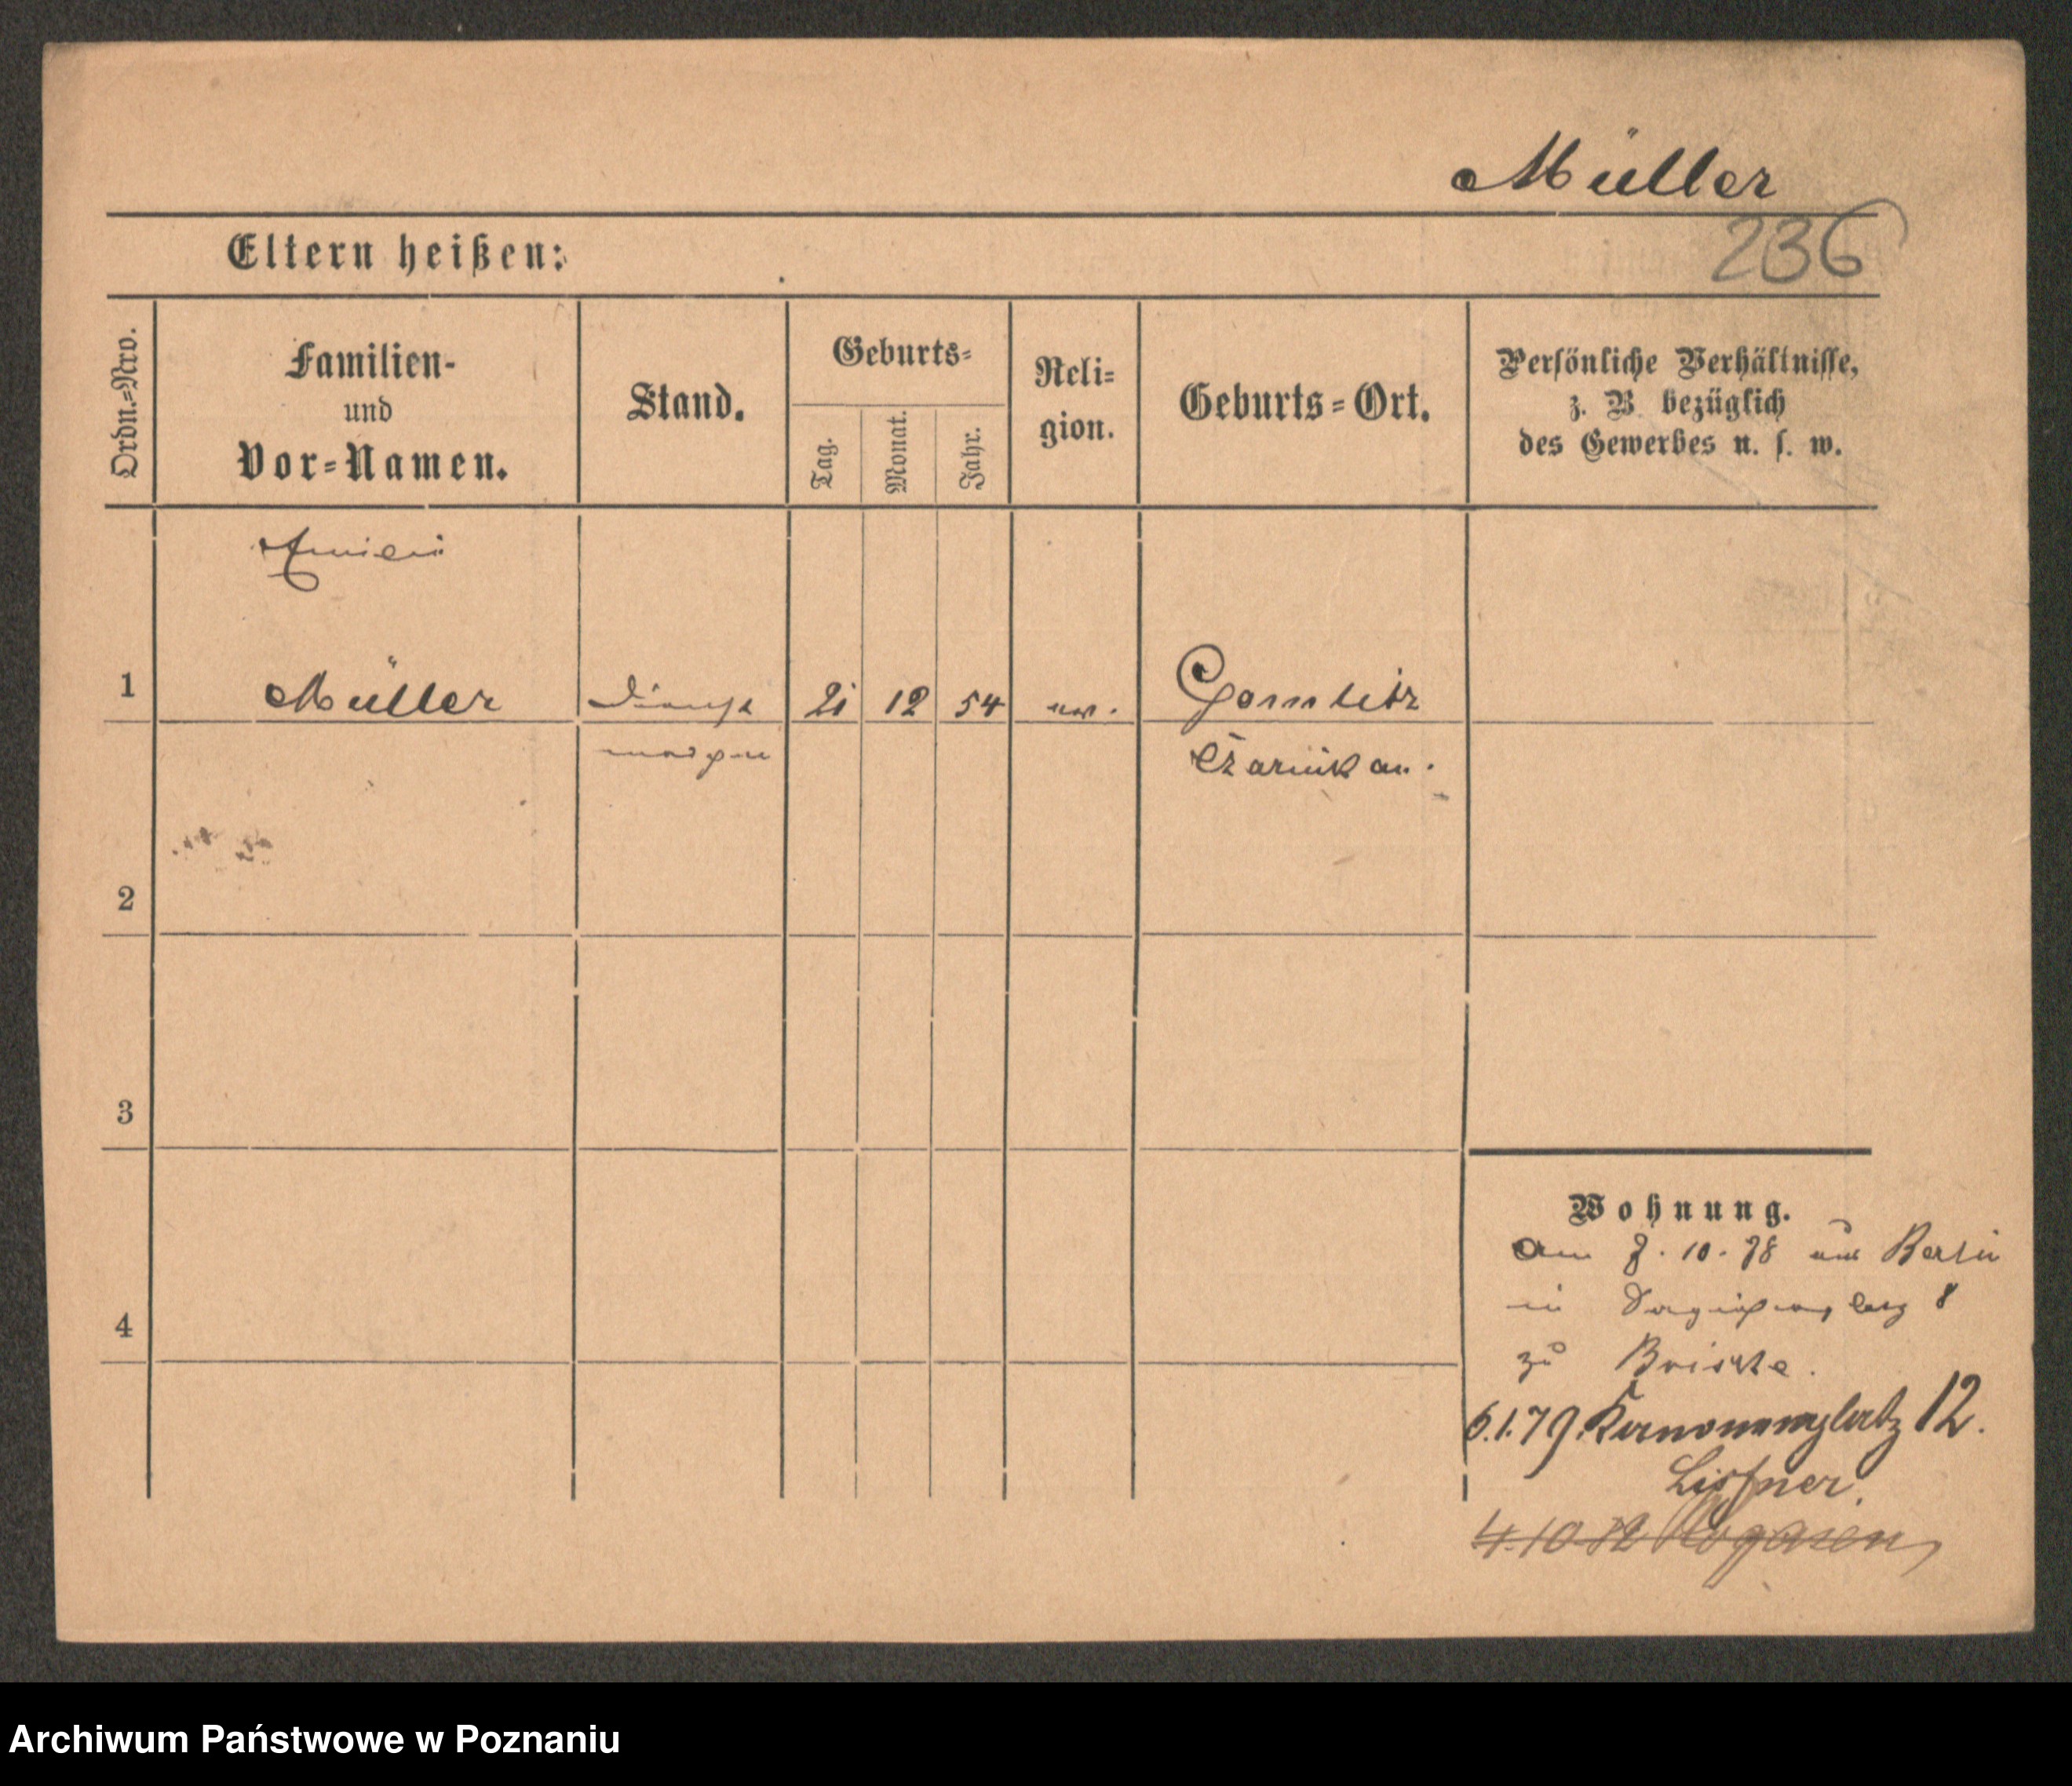 Müller
236
Eltern heißen:
Ordn.-Nro.
Familien-
und
Vor-Namen.
Stand.
Geburts-
Tag.
Monat.
Jahr.
Reli-
gion.
Geburts-Ort.
Persönliche Verhältnisse,
z. B. bezüglich
des Gewerbes u. s. w.
1 Müller Dienst 21 12 54 ev. Gornitz
Czarnikau.
2
3
4
Wohnung.
am 8. 10. 78 aus Berlin
in 8
zu
6.1.79. Kanonenplatz 12.
Lissner.
4.10 82 Rogasen
Archiwum Państwowe w Poznaniu